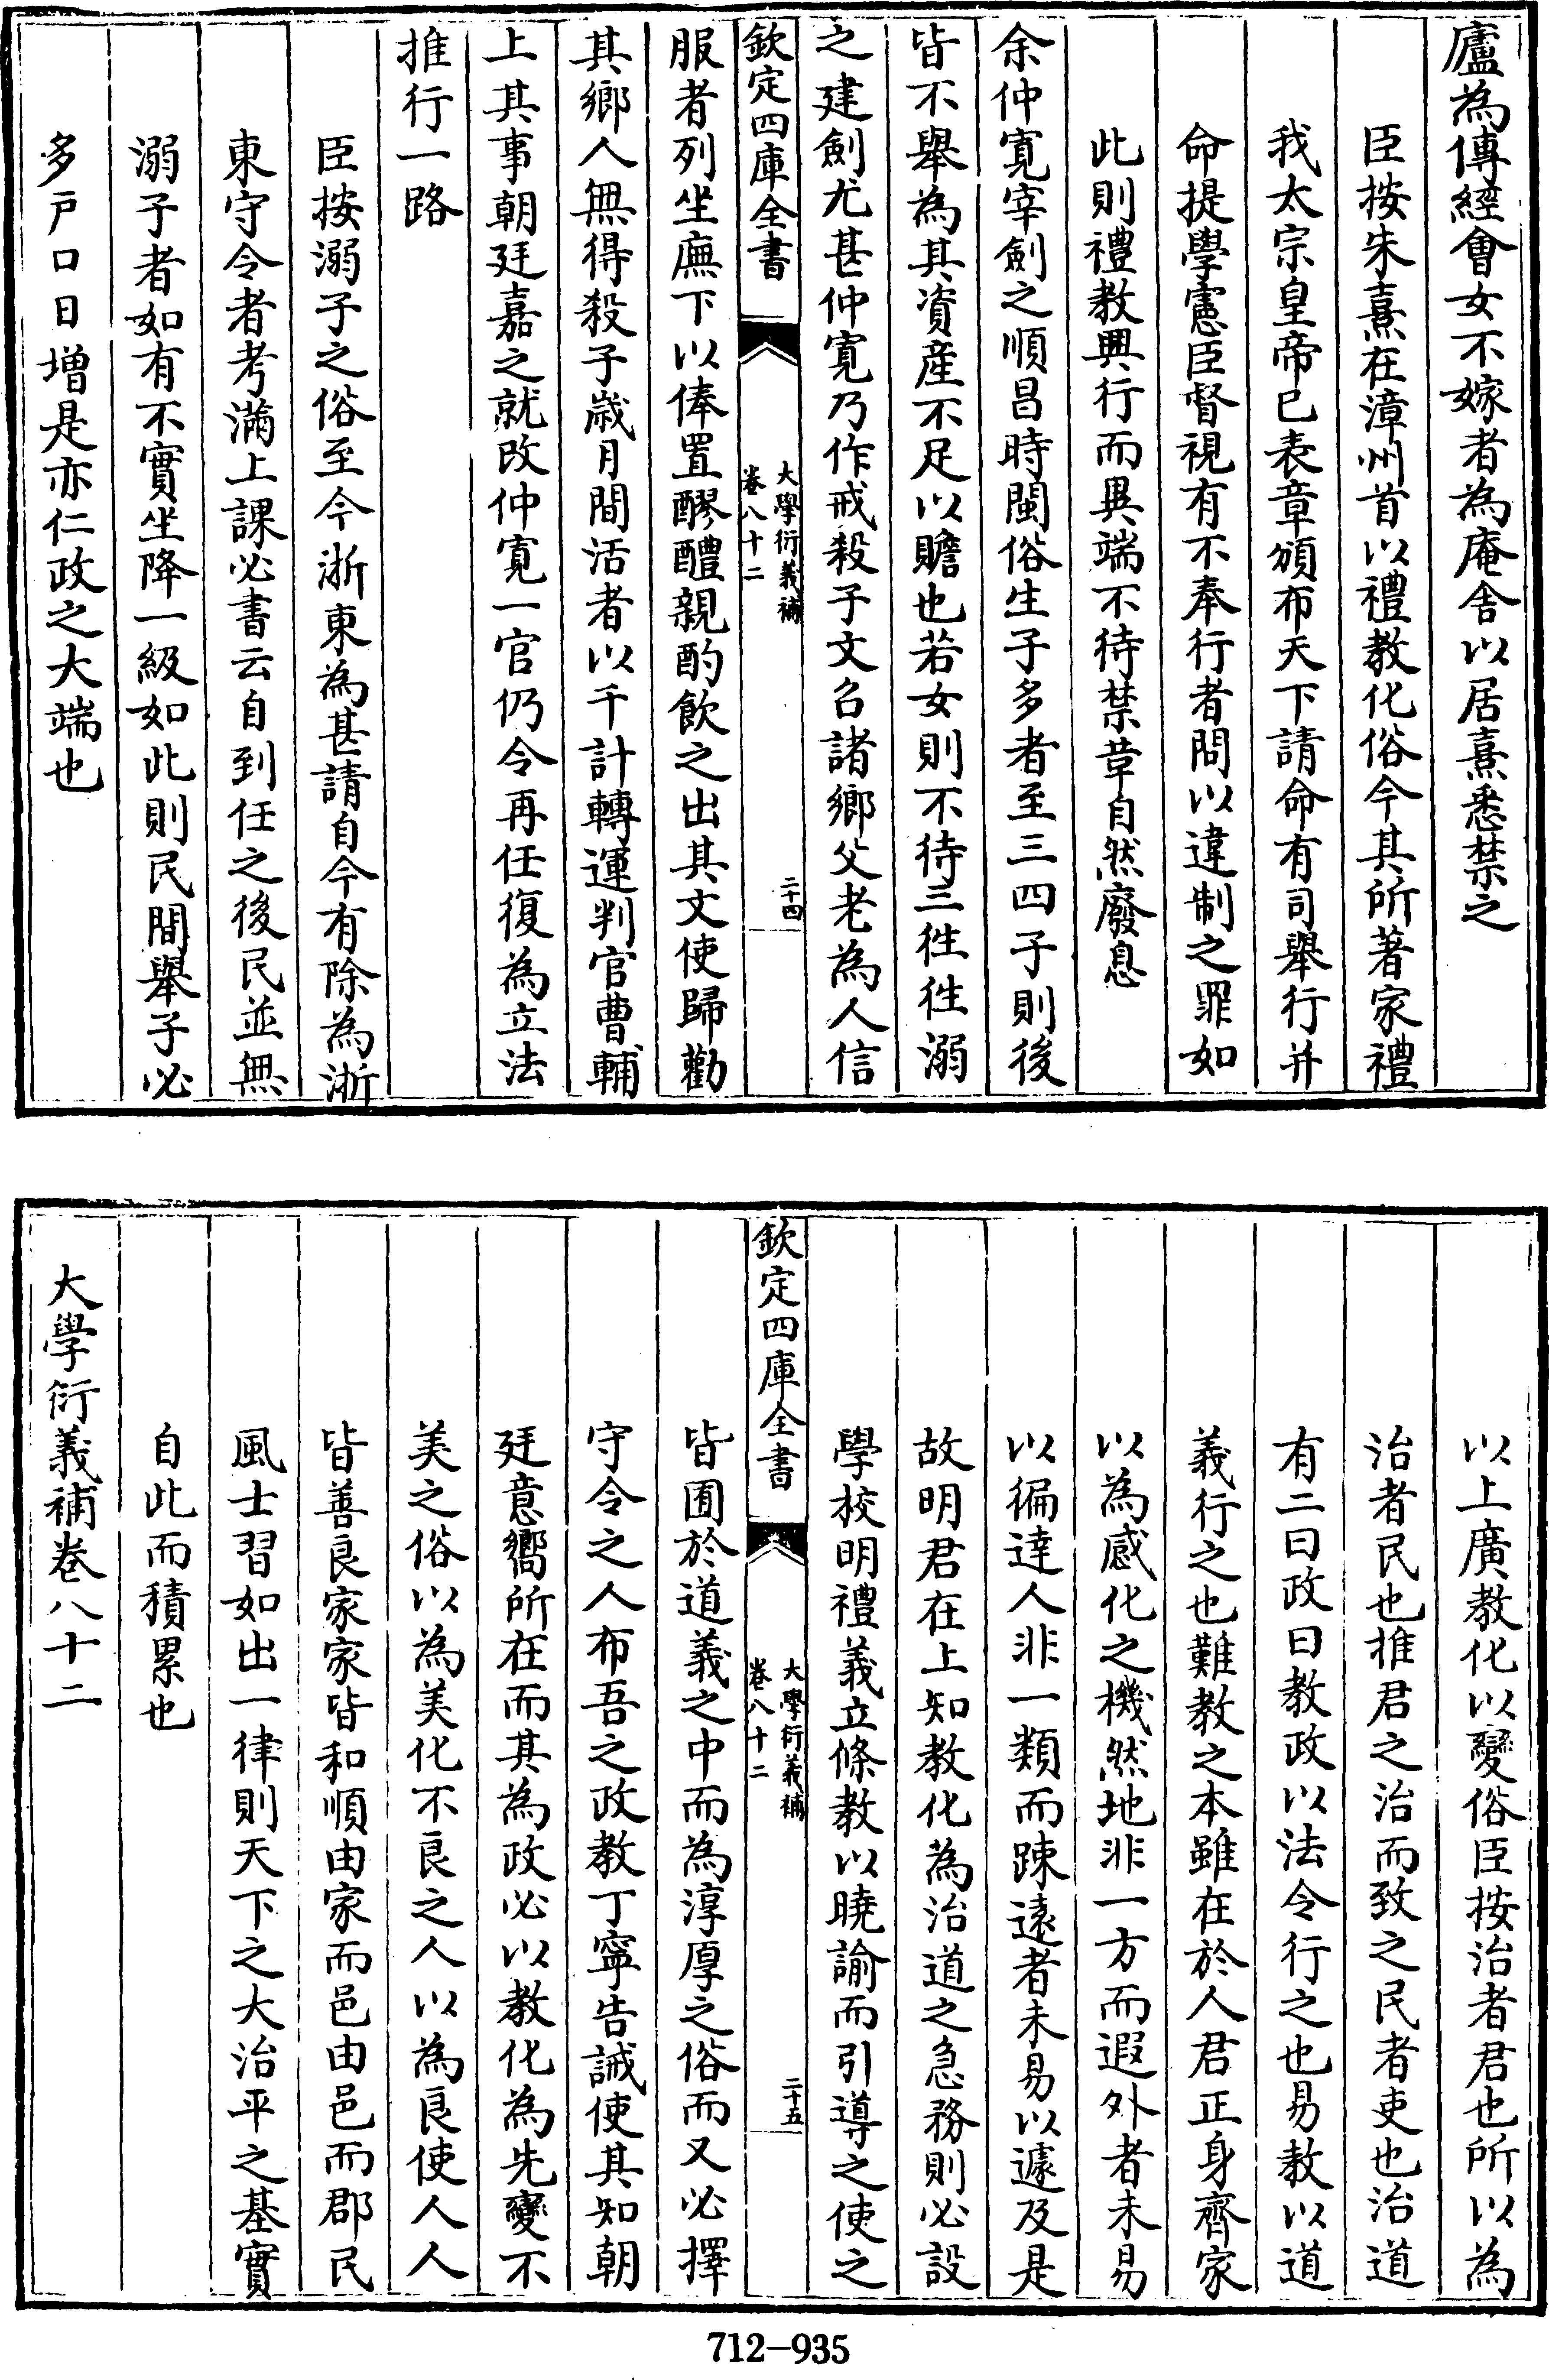 廬為傳經會女不嫁者為庵舍以居熹悉禁之
臣按朱熹在漳州首以禮教化俗今其所著家禮
我太宗皇帝已表章頒布天下請命有司舉行并
命提學憲臣督視有不奉行者問以違制之罪如
此則禮教興行而異端不待禁革自然廢息
余仲寬宰劍之順昌時閩俗生子多者至三四子則後
皆不舉為其資産不足以贍也若女則不待三徃徃溺
之建劍尤甚仲寬乃作戒殺子文召諸鄉父老為人信
欽定四庫全書
大學衍義補
卷八十二
二十四
服者列坐廡下以俸置醪醴親酌飲之出其文使歸勸
其鄉人無得殺子歲月間活者以千計轉運判官曹輔
上其事朝廷嘉之就改仲寬一官仍令再任復為立法
推行一路
臣按溺子之俗至今浙東為甚請自今有除為浙
東守令者考滿上課必書云自到任之後民並無
溺子者如有不實坐降一級如此則民間舉子必
多戶口日增是亦仁政之大端也
以上廣教化以變俗臣按治者君也所以為
治者民也推君之治而致之民者吏也治道
有二曰政曰教政以法令行之也易教以道
義行之也難教之本雖在於人君正身齊家
以為感化之機然地非一方而遐外者未易
以徧達人非一類而踈遠者未易以遽及是
故明君在上知教化為治道之急務則必設
學校明禮義立條教以曉諭而引導之使之
欽定四庫全書
大學衍義補
卷八十二
二十五
皆囿於道義之中而為淳厚之俗而又必擇
守令之人布吾之政教丁寧告誡使其知朝
廷意嚮所在而其為政必以教化為先變不
美之俗以為美化不良之人以為良使人人
皆善良家家皆和順由家而邑由邑而郡民
風士習如出一律則天下之大治平之基實
自此而積累也
大學衍義補卷八十二
712-935